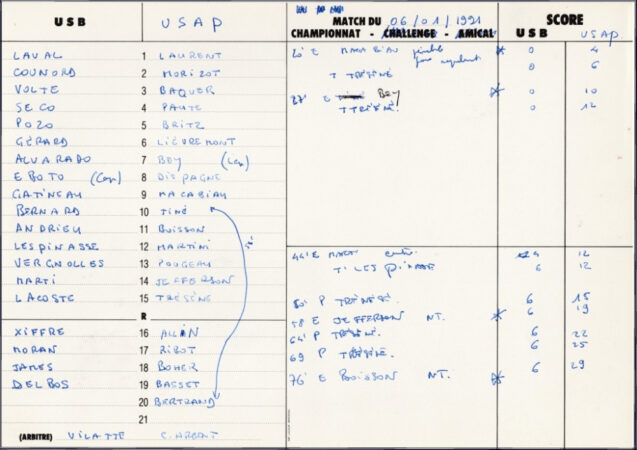 USB USAP
LAVAL 1 LAURENT
COUNORD 2 MORIZOT
VOLTE 3 BAQUER
SECO 4 PAUTE
POZO 5 BRITZ
GÉRARD 6 LIEUREMONT
ALVARADO 7 BEY (Cap)
EBOTO (Cap) 8 DISPAGNE
GATINEAU 9 MACABIAU
BERNARD 10 TINÉ
ANDRIEU 11 BUISSON
LESPINASSE 12 MARTINI
VERGNOLLES 13 POUGEAU
MARTI 14 JEFFERSON
LACOSTE 15 TRÉSÈNE
R
XIFFRE 16 ALLIN
MORAN 17 RIBOT
JAMES 18 BOHER
DELBOS 19 BASSET
20 BERTRAND
21
(ARBITRE) VILATTE C. ARGENT
MATCH DU 06/01/1991
CHAMPIONNAT - CHALLENGE - AMICAL
SCORE
USB USAP
20' E MACABIAU 0 4
T TRÉSÈNE 0 6
27' E BEY 0 10
T TRÉSÈNE. 0 12
44' E MARTI 4 12
T. LESPINASSE 6 12
50' P TRÉSÈNE. 6 15
58 E JEFFERSON NT. 6 19
64' P TRÉSÈNE. 6 22
69 P TRÉSÈNE. 6 25
76' E BUISSON NT. 6 29